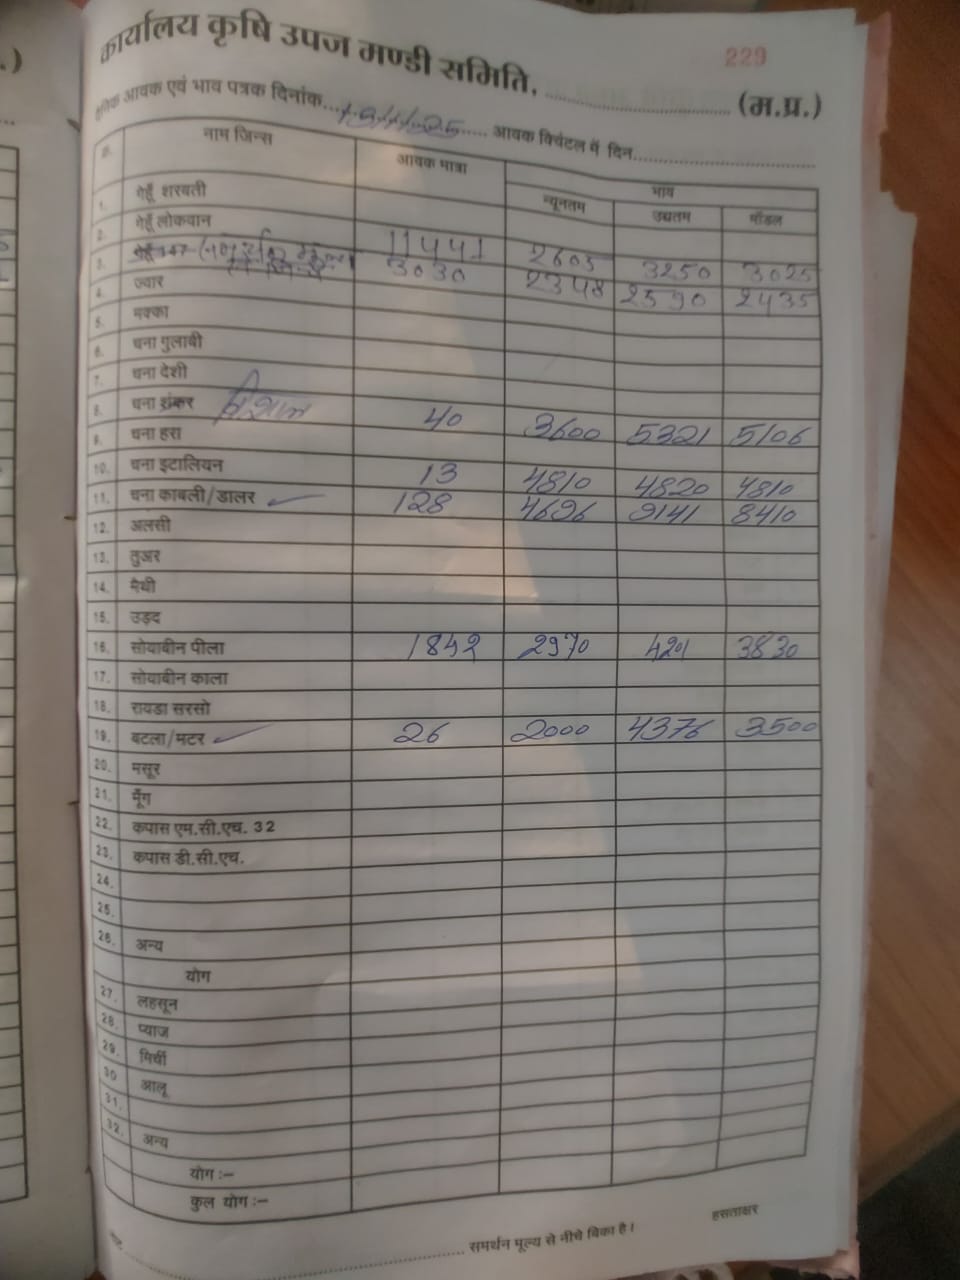 कार्यालय कृषि उपज मण्डी समिति, .................... (म.प्र.)
229
दैनिक आवक एवं भाव पत्रक दिनांक... ..... आवक क्विंटल में दिन...............
नाम जिन्स आवक मात्रा भाव
न्यूनतम उच्चतम मॉडल
1. गेहूँ शरबती
2. गेहूँ लोकवान
3. 11441 2603 3250 3025
4. ज्वार 3030 2348 2590 2435
5. मक्का
6. चना गुलाबी
7. चना देशी
8. चना शंकर विशाल 40 3600 5321 5106
9. चना हरा
10. चना इटालियन 13 4810 4820 4810
11. चना काबली/डालर 128 4696 9141 8410
12. अलसी
13. तुअर
14. मैथी
15. उड़द
16. सोयाबीन पीला 1842 2970 4201 3830
17. सोयाबीन काला
18. रायडा सरसो
19. बटला/मटर 26 2000 4376 3500
20. मसूर
21. मूँग
22. कपास एम.सी.एच. 32
23. कपास डी.सी.एच.
24.
25.
26. अन्य
योग
27. लहसून
28. प्याज
29. मिर्ची
30 आलू
31.
32. अन्य
योग :–
कुल योग :–
समर्थन मूल्य से नीचे बिका है।
हस्ताक्षर